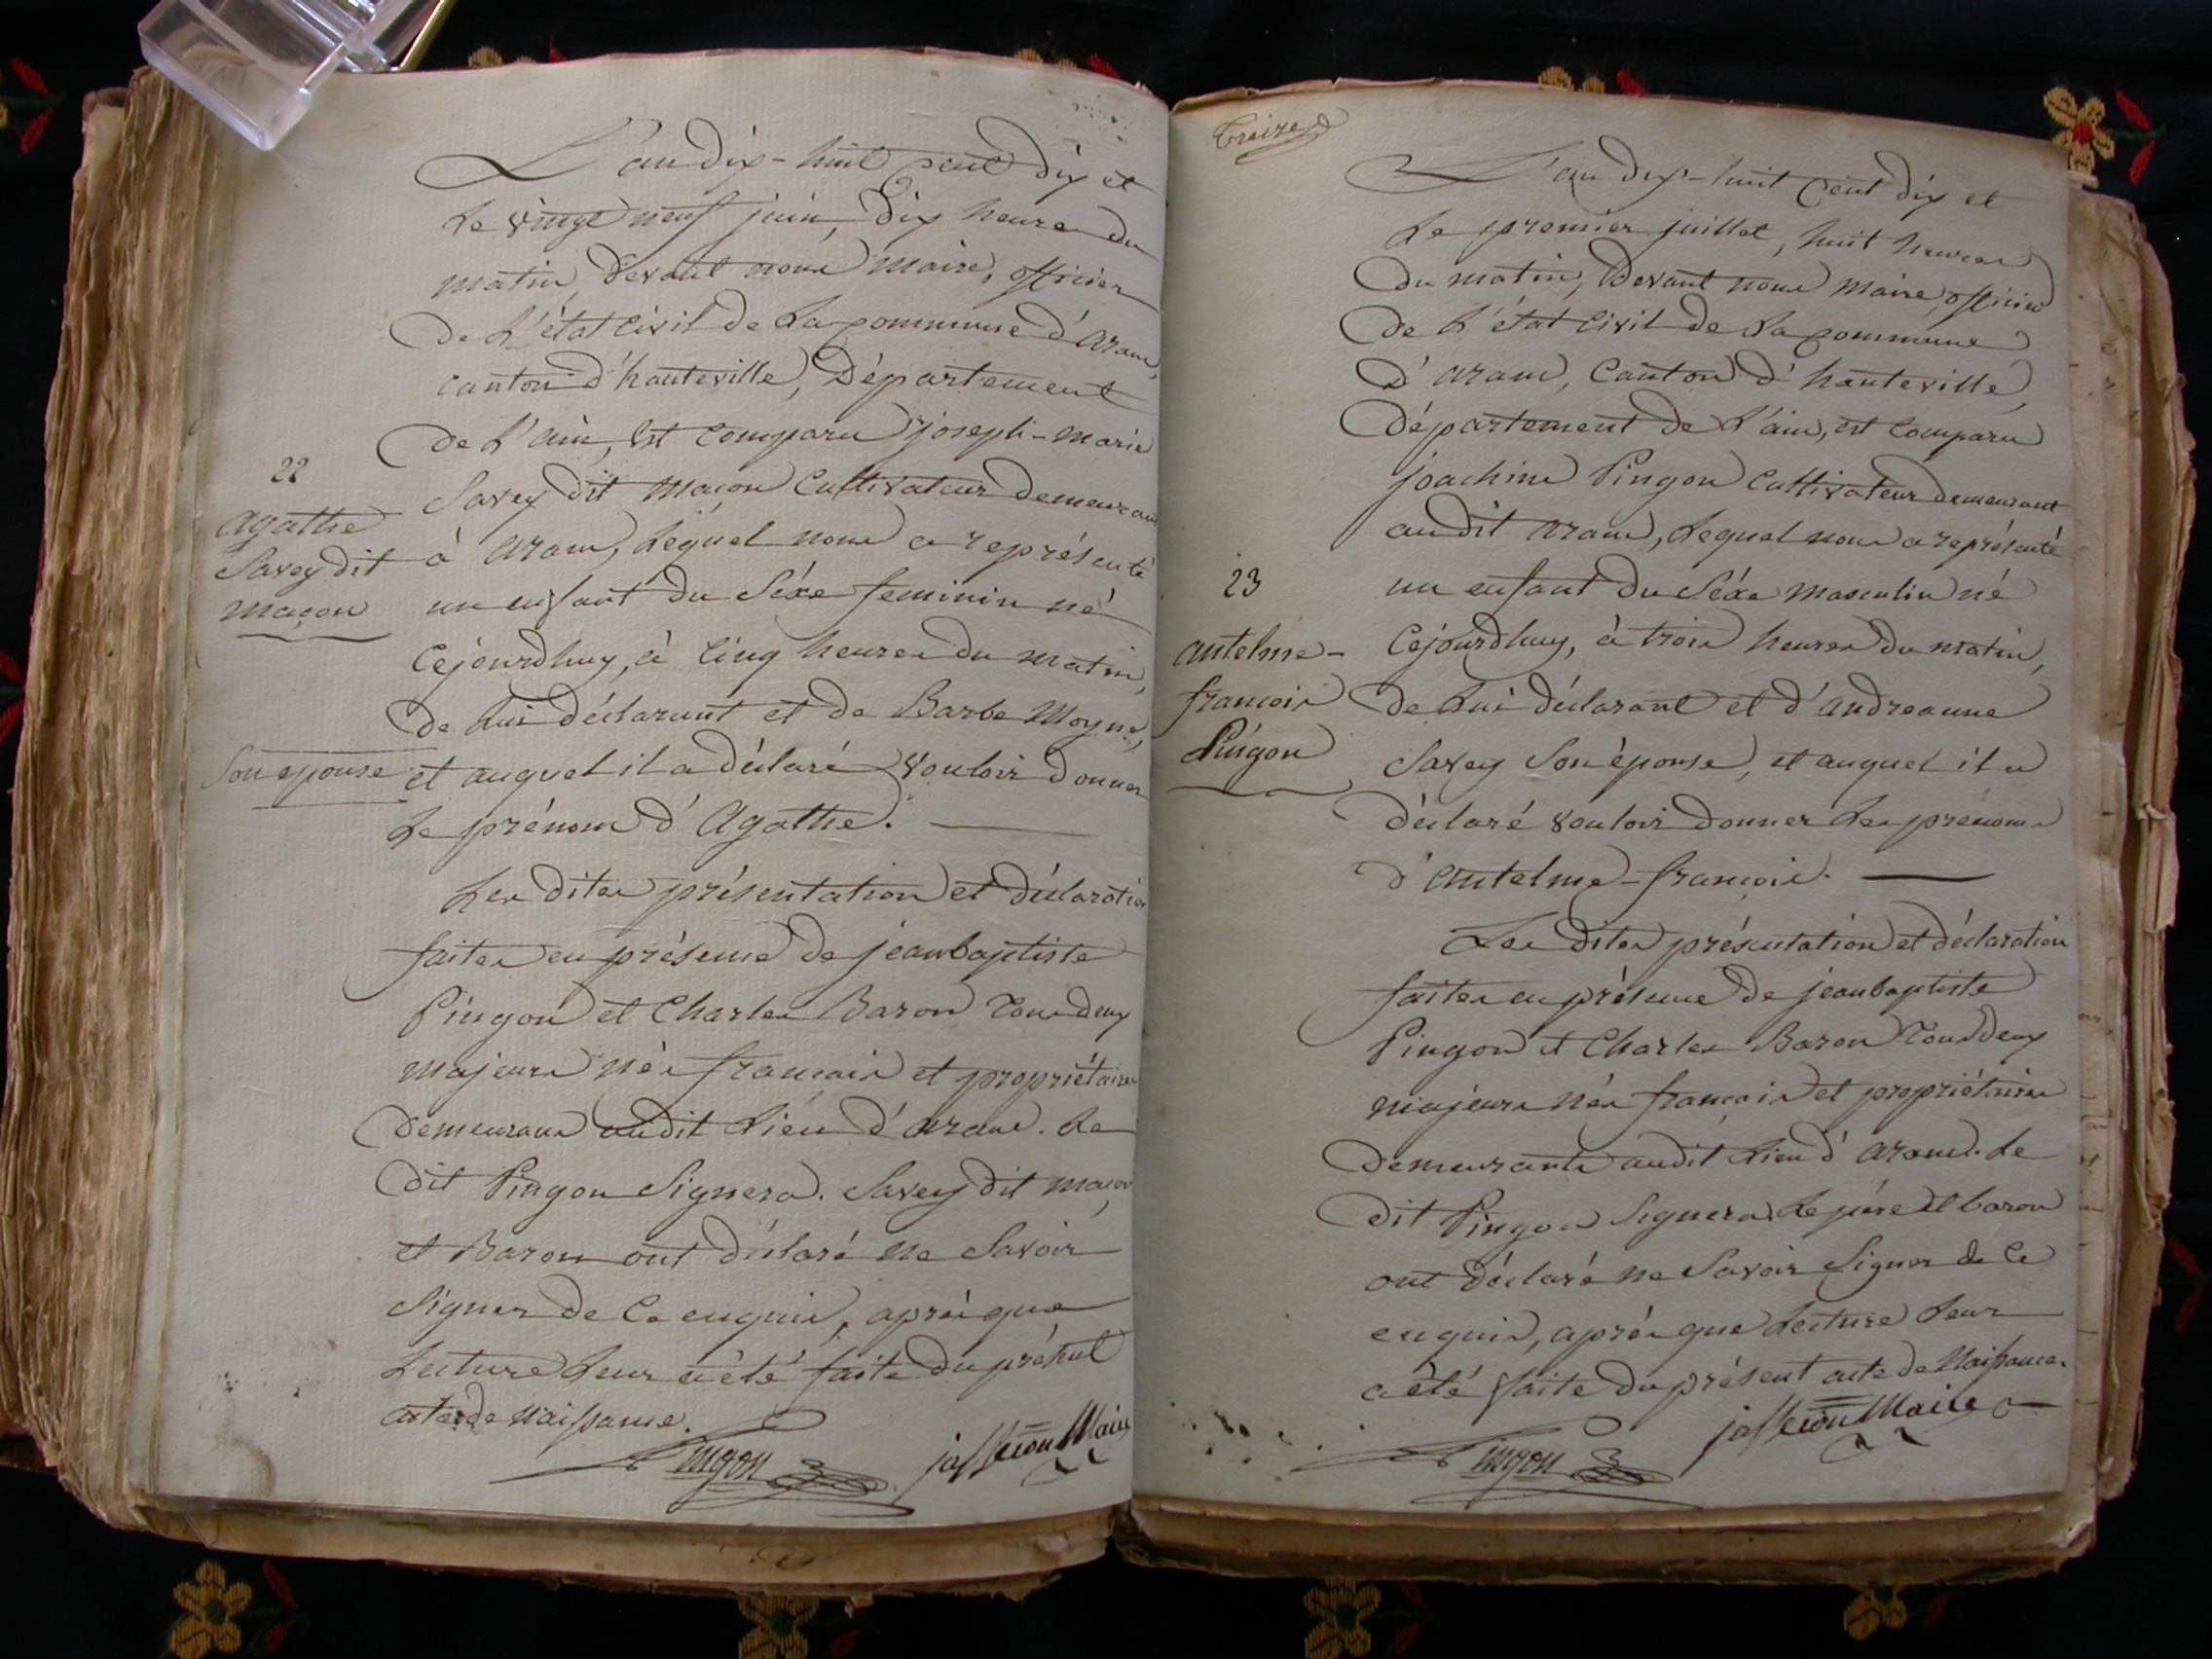 L'an dix-huit cent dix et
le vingt neuf juin, dix heures du
matin, devant nous maire, officier
de l'état civil de la commune d'aranc,
canton d'hauteville, Département
de l'ain, est comparu joseph-marie
22
Savey dit maçon Cultivateur demeurant
agathe
Savey dit
maçon
à aranc, lequel nous a représenté
un enfant du séxe feminin né
cejourdhuy, à cinq heures du matin,
de lui déclarant et de Barbe Moyne,
Son epouse
et auquel il a déclaré vouloir donner
le prénom d'Agathe.
Les dites présentation et déclaration
faites en présence de jeanbaptiste
Pingon et Charles Baron tous deux
majeurs nés français et propriétaires
demeurans audit lieu d'aranc. Le
dit Pingon signera. Savey dit maçon
et Baron ont déclaré ne savoir
signer de ce enquis, après que
lecture leur a été faite du présent
acte de naissance.
Pingon jasseron Maire
treize
L'an dix-huit cent dix et
le premier juillet, huit heures
du matin, devant nous maire, officier
de l'état civil de la commune
d'aranc, canton d'hauteville,
département de l'ain, est comparu
joachim Pingon cultivateur demeurant
audit aranc, lequel nous a représenté
23
un enfant du séxe masculin né
antelme-
françois
Pingon
cejourdhuy, à trois heures du matin,
de lui déclarant et d'andreanne
Savey son épouse, et auquel il a
déclaré vouloir donner les prénoms
d'antelme-françois.
Les dites présentation et déclaration
faites en présence de jeanbaptiste
Pingon et Charles Baron tous deux
majeurs nés français et propriétaires
demeurants audit lieu d'aranc. Le
dit Pingon signera. Le père et baron
ont déclaré ne savoir signer de ce
enquis, après que lecture leur
a été faite du présent acte de naissance.
Pingon jasseron Maire